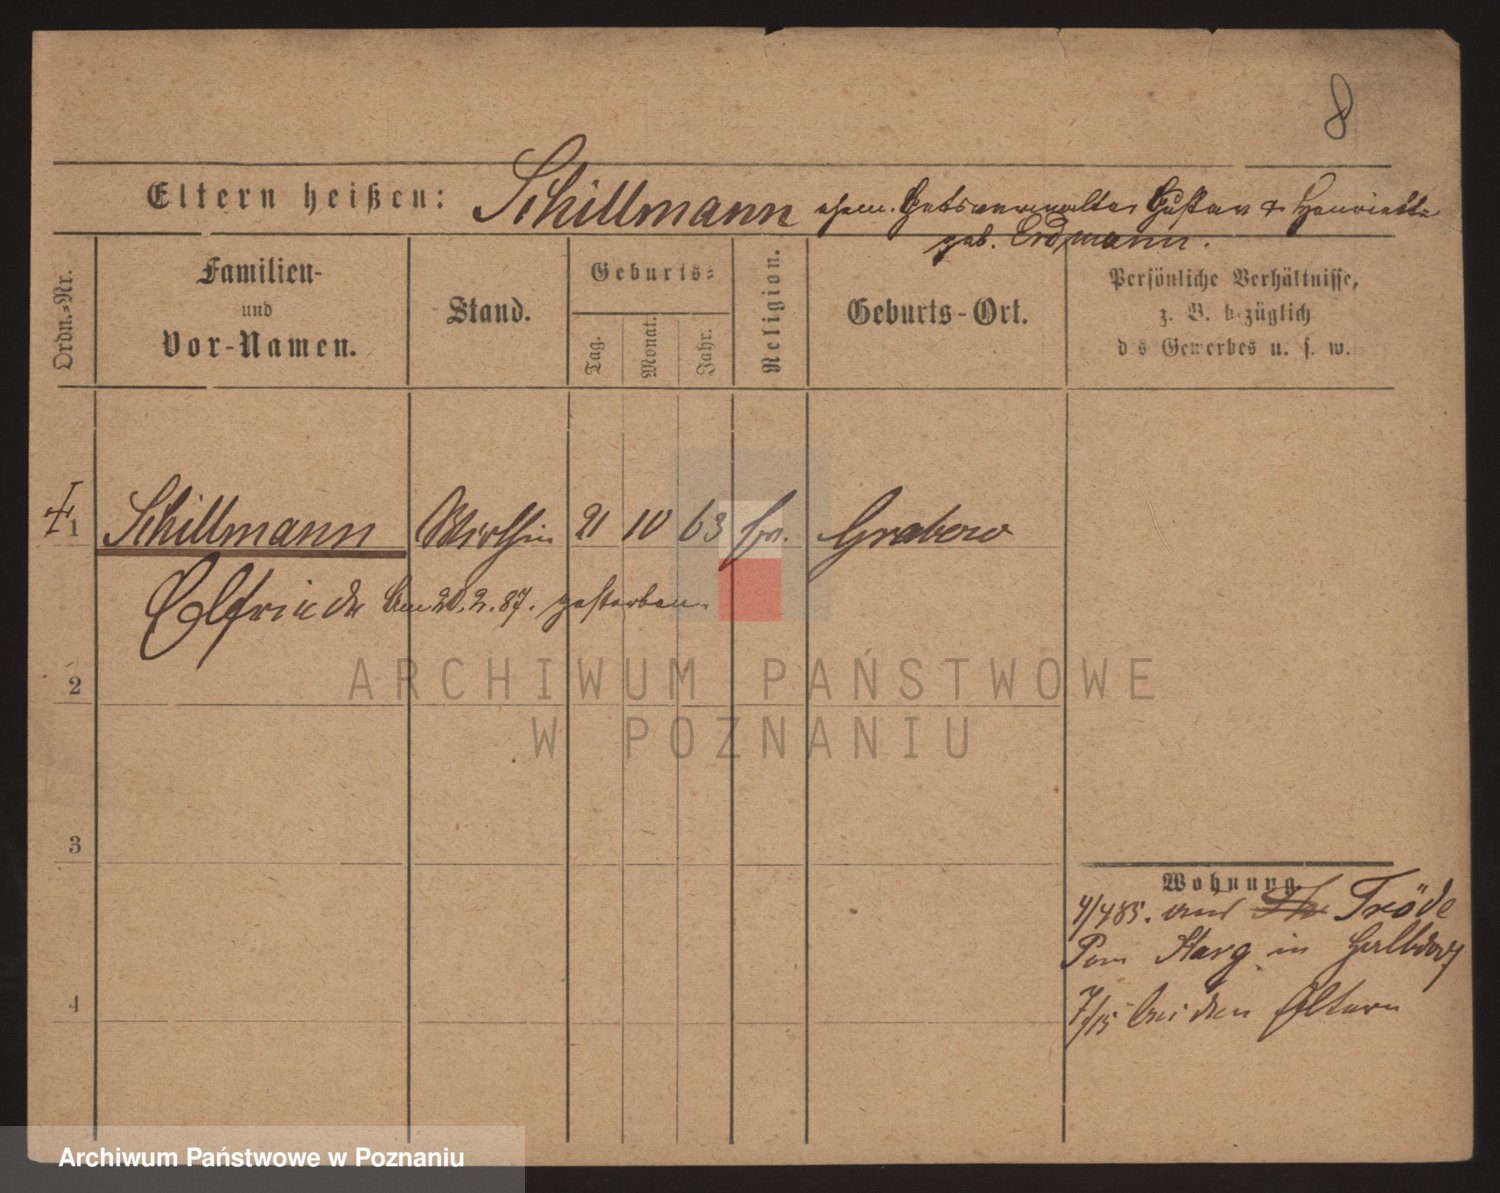 8
Eltern heißen: Schillmann ehem. Gutsverwalter Gustav & Henriette
geb. Erdmann.
Ordn.-Nr.
Familien-
und
Vor-Namen.
Stand.
Geburts-
Tag.
Monat.
Jahr.
Religion.
Geburts-Ort.
Persönliche Verhältnisse,
z. B. bezüglich
des Gewerbes u. s. w.
1 Schillmann Wirthin 21 10 63 Grabow
Elfriede Am 20.2.87. gestorben.
2
3
4
ARCHIWUM PAŃSTWOWE
W POZNANIU
Wohnung.
4/4 85. Tröde
Pom Starg in
7/15 bei den Eltern
Archiwum Państwowe w Poznaniu